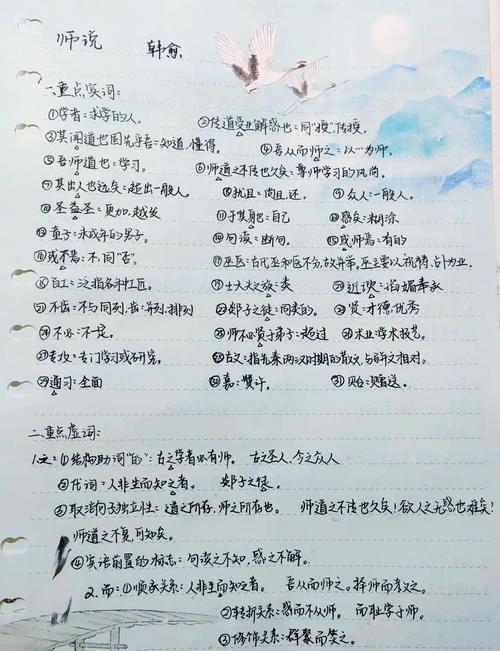 师说 韩愈
一.重点实词:
①学者:求学的人。 ②传道受业解惑也:同"授",传授。
③其闻道也固先乎吾:知道,懂得。 ④吾从而师之:以…为师。
⑤吾师道也:学习。 ⑥师道之不传也久矣:尊师学习的风尚
⑦其出人也远矣:超出一般人。 ⑧犹且:尚且,还。 ⑨众人:一般人。
⑩圣益圣:更加,越发 ⑪于其身也:自己 ⑫惑矣:糊涂
⑬童子:未成年的男子。 ⑭句读:断句。 ⑮或师焉:有的
⑯或不焉:同"否"。 ⑰巫医:古代巫和医不分,故并举。巫主要以祝祷、占卜为业。
⑱百工:泛指各种工匠。 ⑲士大夫之族:类 ⑳近谀:谄媚奉承
不齿:不与同列,齿:并列,排列 郯子之徒:同类的。 贤:才德,优秀
不必:不一定。 师不必贤于弟子:超过 术业:学术技艺。
专攻:专门学习或研究。 古文:指先秦两汉时期的散文,与骈文相对。
通习:全面 嘉:赞许。 贻:赠送。
二.重点虚词:
1.之:①结构助词"的":古之学者必有师。 古之圣人,今之众人
②代词:人非生而知之者。 郯子之徒。
③取消句子独立性:道之所存,师之所存也。 师道之不传也久矣!欲人之无惑也难矣!
师道之不复,可知矣。
④宾语前置的标志:句读之不知,惑之不解。
2.而:①顺承关系:人非生而知之者。 吾从而师之。择师而教之。
②转折关系:惑而不从师。 而耻学于师。
③修饰关系:群聚而笑之。